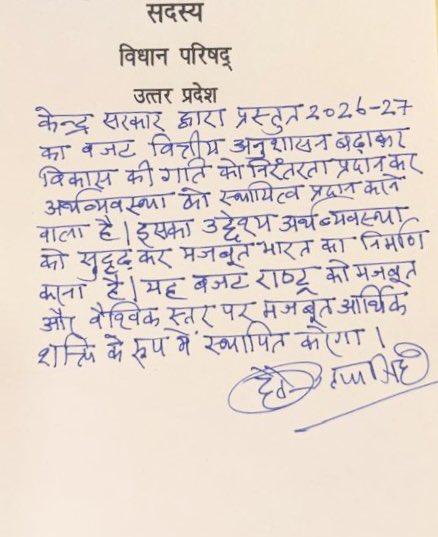 सदस्य
विधान परिषद्
उत्तर प्रदेश
केन्द्र सरकार द्वारा प्रस्तुत 2026-27
का बजट वित्तीय अनुशासन बढ़ाकर
विकास की गति को निरंतरता प्रदान कर
अर्थव्यवस्था को स्थायित्व प्रदान करने
वाला है। इसका उद्देश्य अर्थव्यवस्था
को सुदृढ़ कर मजबूत भारत का निर्माण
करना है। यह बजट राष्ट्र को मजबूत
और वैश्विक स्तर पर मजबूत आर्थिक
शक्ति के रूप में स्थापित करेगा।